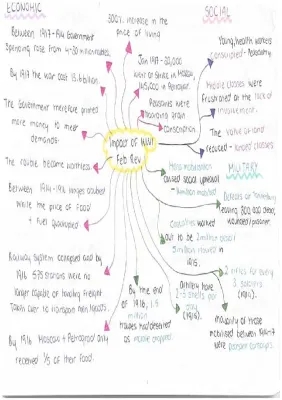 ECONOMIC
Between 1917 - 1914 Government
Spending rose from 4-30 million rubles.
By 1917 the war cost 13.6 billion.
The Government therefore printed
more money to meet
demands.
The rouble became worthless.
Between 1914 - 1916 wages doubled
while the price of food
+ fuel quadrupled
Railway system collapsed and by
1916 575 stations were no
longer capable of handling freight
Taken over to transport men + goods.
By 1916 Moscow + Petrograd only
received 1/3 of their food.
300% increase in the
price of living
Jan 1917 - 30,000
were on strike in Moscow,
145,000 in Petrograd.
Peasants were
hoarding grain
conscription.
Impact of WWI
Feb Rev
SOCIAL
Young, health workers
conscripted -
Middle classes were
frustrated at the lack of
involvement.
The value of land
reduced - landed classes
MILITARY
Mass mobilisation
caused social upheaval
million mobilised
Defeats at Tannenburg
leaving 300,000 dead,
wounded / prisoner.
Casualties worked
out to be 2 million dead
million
1915.
2 rifles for every
3 soldiers
(1915).
Artillery have
2-3 shells per
day
(1915).
By the end
of 1916, 1.5
million
troops had deserted
as morale dropped
majority of those
mobilised between 1914-17
were peasant conscripts.